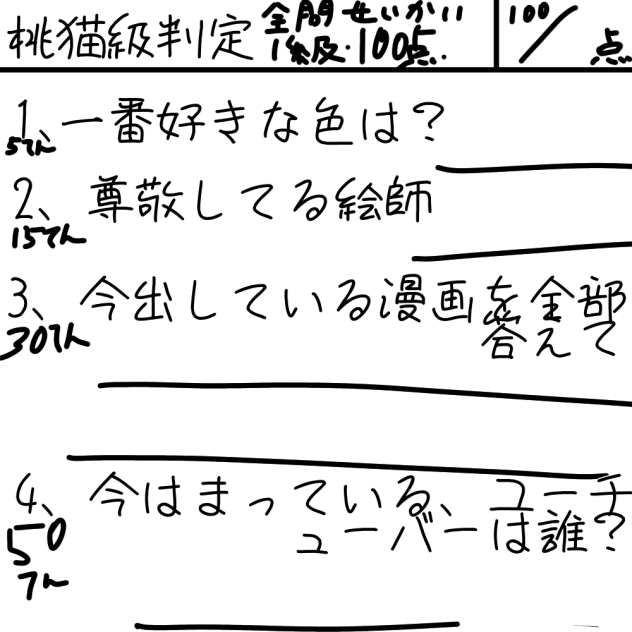 桃猫級判定
全問せいかい
1級及·100点.
100/点
1、一番好きな色は?
5てん
2、尊敬してる絵師
15てん
3、今出している漫画を全部
30てん
答えて
4、今はまっている、ユーチ
50
てん
ューバーは誰?